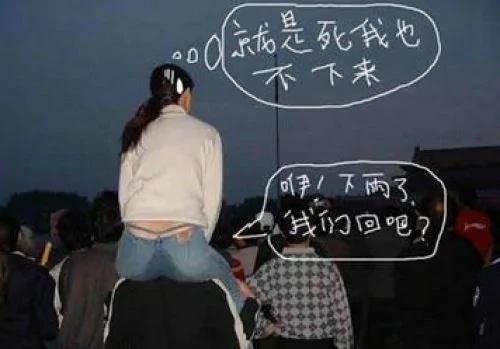 就是死我也
不下来
咿！下雨了,
我们回吧？